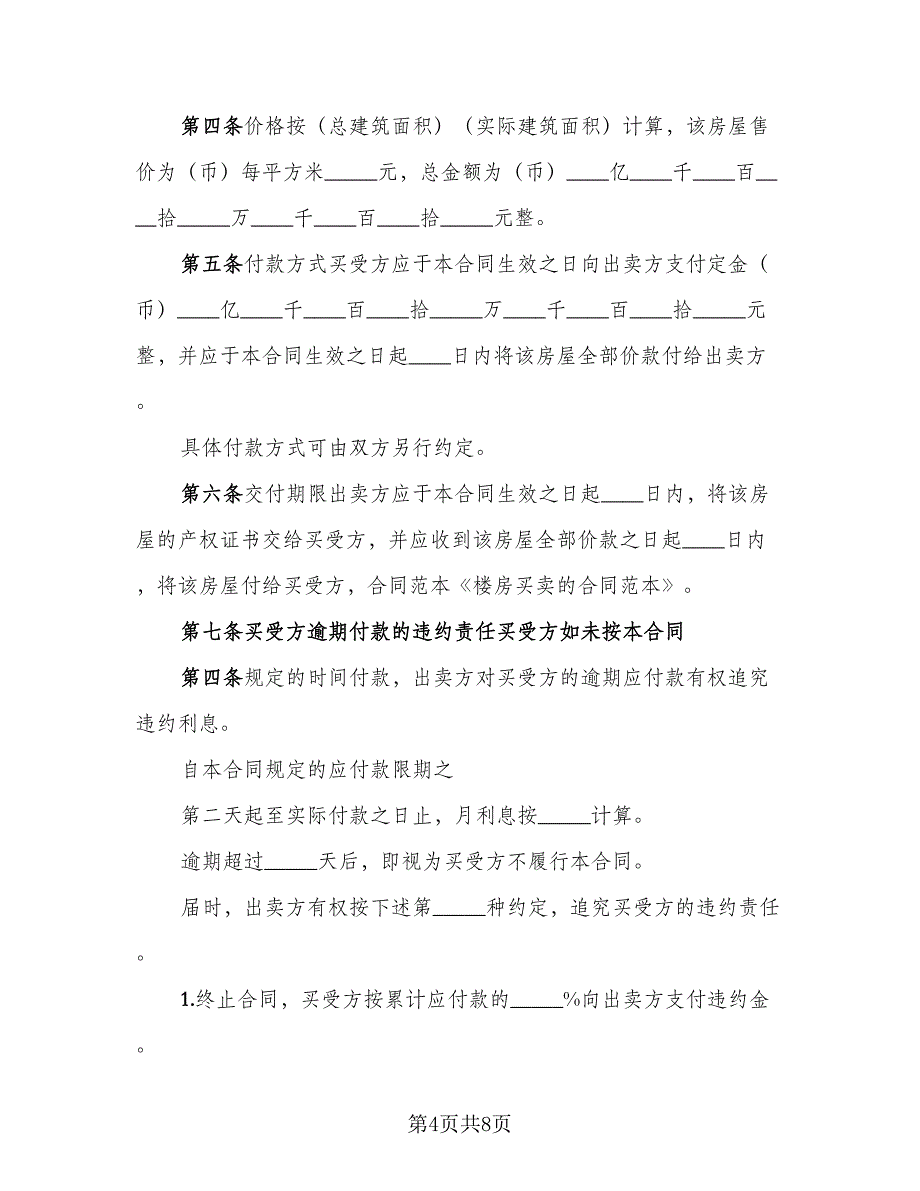 第四条价格按（总建筑面积）（实际建筑面积）计算，该房屋售
价为（币）每平方米_____元，总金额为（币）____亿____千____百__
__拾_____万____千____百____拾_____元整。
第五条付款方式买受方应于本合同生效之日向出卖方支付定金（
币）____亿____千____百____拾_____万____千____百____拾_____元
整，并应于本合同生效之日起____日内将该房屋全部价款付给出卖方
。
具体付款方式可由双方另行约定。
第六条交付期限出卖方应于本合同生效之日起____日内，将该房
屋的产权证书交给买受方，并应收到该房屋全部价款之日起____日内
，将该房屋付给买受方，合同范本《楼房买卖的合同范本》。
第七条买受方逾期付款的违约责任买受方如未按本合同
第四条规定的时间付款，出卖方对买受方的逾期应付款有权追究
违约利息。
自本合同规定的应付款限期之
第二天起至实际付款之日止，月利息按_____计算。
逾期超过_____天后，即视为买受方不履行本合同。
届时，出卖方有权按下述第_____种约定，追究买受方的违约责任
。
1.终止合同，买受方按累计应付款的_____%向出卖方支付违约金
。
第4页共8页